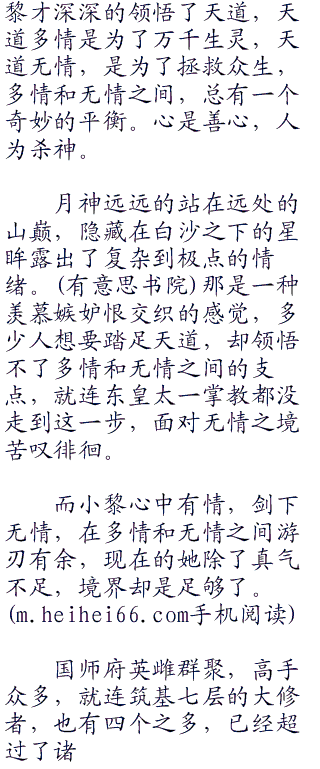 黎才深深的领悟了天道，天
道多情是为了万千生灵，天
道无情，是为了拯救众生，
多情和无情之间，总有一个
奇妙的平衡。心是善心，人
为杀神。
月神远远的站在远处的
山巅，隐藏在白沙之下的星
眸露出了复杂到极点的情
绪。(有意思书院)那是一种
羡慕嫉妒恨交织的感觉，多
少人想要踏足天道，却领悟
不了多情和无情之间的支
点，就连东皇太一掌教都没
走到这一步，面对无情之境
苦叹徘徊。
而小黎心中有情，剑下
无情，在多情和无情之间游
刃有余，现在的她除了真气
不足，境界却是足够了。
(m.heihei66.com手机阅读)
国师府英雌群聚，高手
众多，就连筑基七层的大修
者，也有四个之多，已经超
过了诸